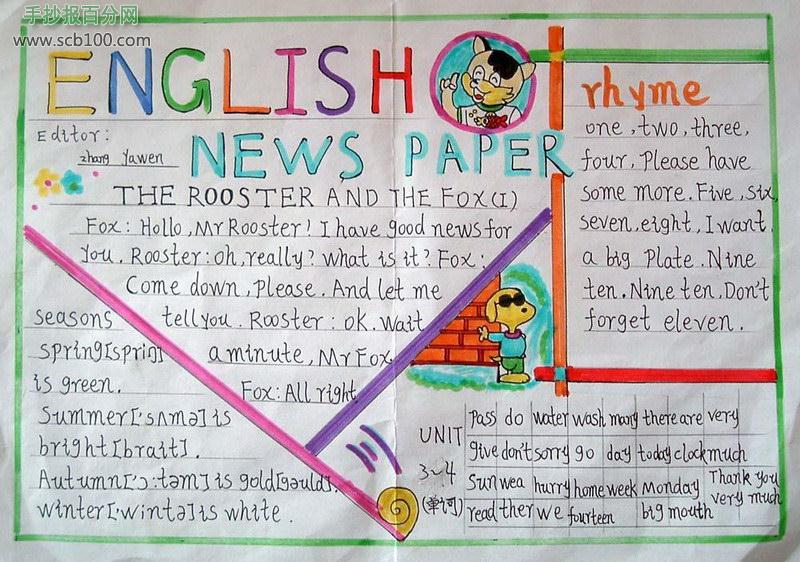 手抄报百分网
www.scb100.com
ENGLISH
Editor:
zhang Yawen
NEWS PAPER
THE ROOSTER AND THE FOX(I)
Fox: Hollo, Mr Rooster! I have good news for
you. Rooster: oh, really? what is it? Fox:
Come down, please. And let me
tell you. Rooster: ok. Wait
a minute, Mr Fox.
Fox: All right.
seasons
spring[spriŋ]
is green.
Summer['sʌmə] is
bright[brait].
Autumn['ɔ:təm] is gold[gəuld].
winter['wintə] is white.
rhyme
one, two, three,
four, Please have
some more. Five, six,
seven, eight, I want
a big Plate. Nine
ten. Nine ten. Don't
forget eleven.
UNIT
3~4
(单词)
Pass do water wash many there are very
give don't sorry go day today clock much
Sun wea hurry home week Monday Thank you very much
read ther we fourteen big mouth